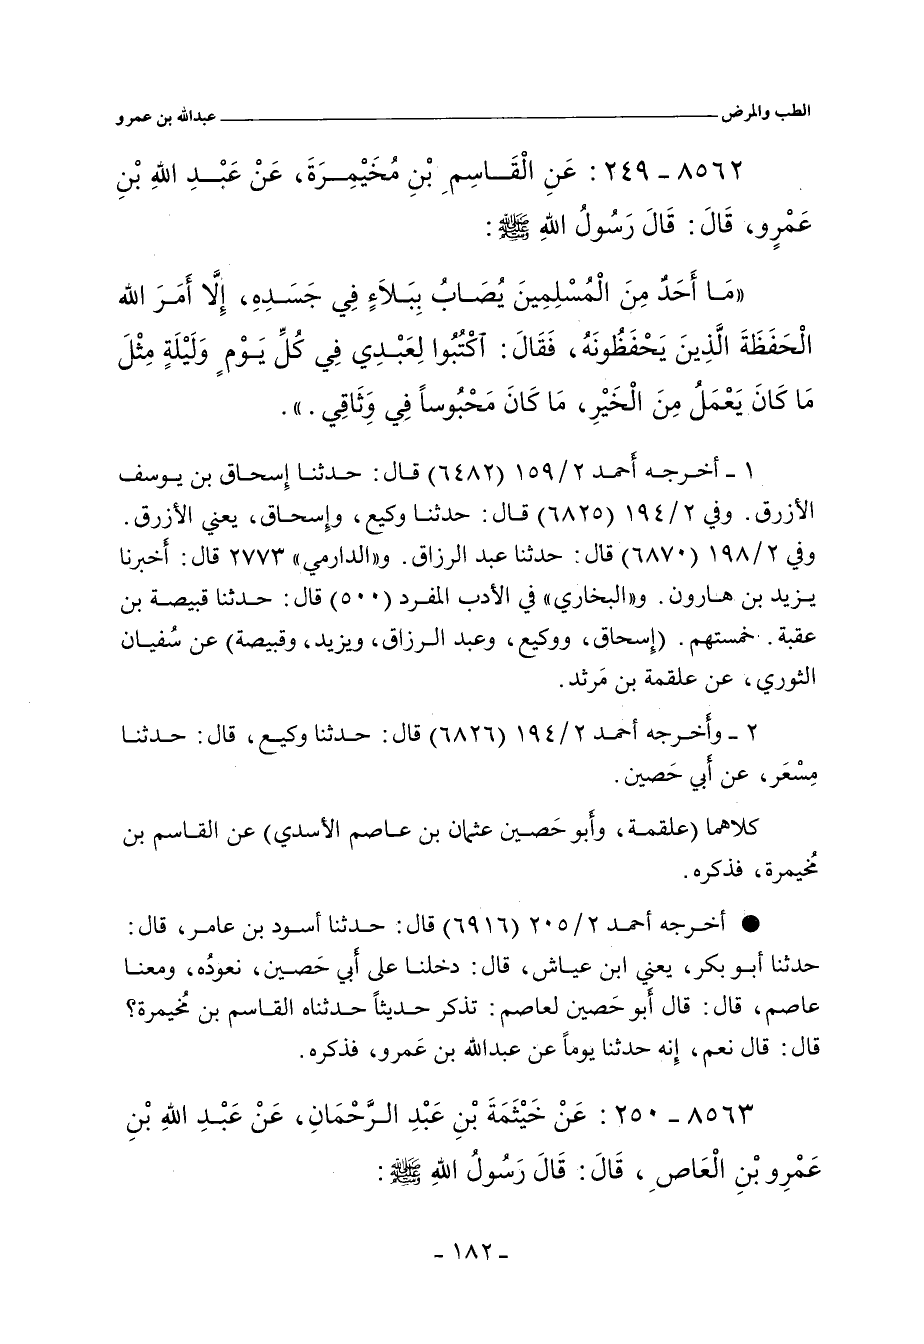 الطب والمرض ــــــــــ عبدالله بن عمرو
٨٥٦٢ ـ ٢٤٩ : عَنِ الْقَـاسِمِ بْنِ مُخَيْمِـرَةَ، عَنْ عَبْـدِ اللهِ بْنِ
عَمْرٍو، قَالَ: قَالَ رَسُولُ اللهِ ﷺ:
«مَـا أَحَدٌ مِنَ الْمُسْلِمِينَ يُصَـابُ بِبَلاَءٍ فِي جَسَـدِهِ، إِلَّا أَمَـرَ الله
الْحَفَظَةَ الَّذِينَ يَحْفَظُونَهُ، فَقَالَ: آكْتُبُوا لِعَبْدِي فِي كُلِّ يَـوْمٍ وَلَيْلَةٍ مِثْلَ
مَا كَانَ يَعْمَلُ مِنَ الْخَيْرِ، مَا كَانَ مَحْبُوساً فِي وِثَاقِي .».
١ ـ أخـرجـه أحمـد ١٥٩/٢ (٦٤٨٢) قـال: حـدثنـا إسحـاق بن يـوسف
الأزرق. وفي ١٩٤/٢ (٦٨٢٥) قـال: حدثنا وكيع، وإسحـاق، يعني الأزرق.
وفي ١٩٨/٢ (٦٨٧٠) قال: حدثنا عبد الرزاق. و«الدارمي» ٢٧٧٣ قال: أخبرنا
يـزيد بن هـارون. و«البخاري» في الأدب المفـرد (٥٠٠) قال: حـدثنا قبيصـة بن
عقبة. خمستهم. (إسحاق، ووكيع، وعبد الـرزاق، ويزيد، وقبيصة) عن سُفيـان
الثوري، عن علقمة بن مَرثد.
٢ ـ وأَخـرجه أحمـد ١٩٤/٢ (٦٨٢٦) قال: حـدثنا وكيـع، قال: حـدثنـا
مِسْعَر، عن أَبي حَصين.
كلاهما (علقمـة، وأَبو حَصـين عثمان بن عـاصم الأسدي) عن القـاسم بن
مُخيمرة، فذكره.
● أخـرجه أحمـد ٢٠٥/٢ (٦٩١٦) قال: حـدثنا أسود بن عامـر، قال:
حدثنا أبـو بكر، يعني ابن عيـاش، قال: دخلنـا على أَبي حَصـين، نعودُه، ومعنـا
عاصم، قال: قال أَبو حَصين لعاصم: تذكر حـديثاً حـدثناه القـاسم بن مُخيمرة؟
قال: قال نعم، إنه حدثنا يوماً عن عبدالله بن عَمرو، فذكره.
٨٥٦٣ ـ ٢٥٠ : عَنْ خَيْثَمَةَ بْنِ عَبْدِ الـرَّحْمَانِ، عَنْ عَبْـدِ اللهِ بْنِ
عَمْرِو بْنِ الْعَاصِ، قَالَ: قَالَ رَسُولُ اللهِ ﷺ:
ـ ١٨٢ ـ